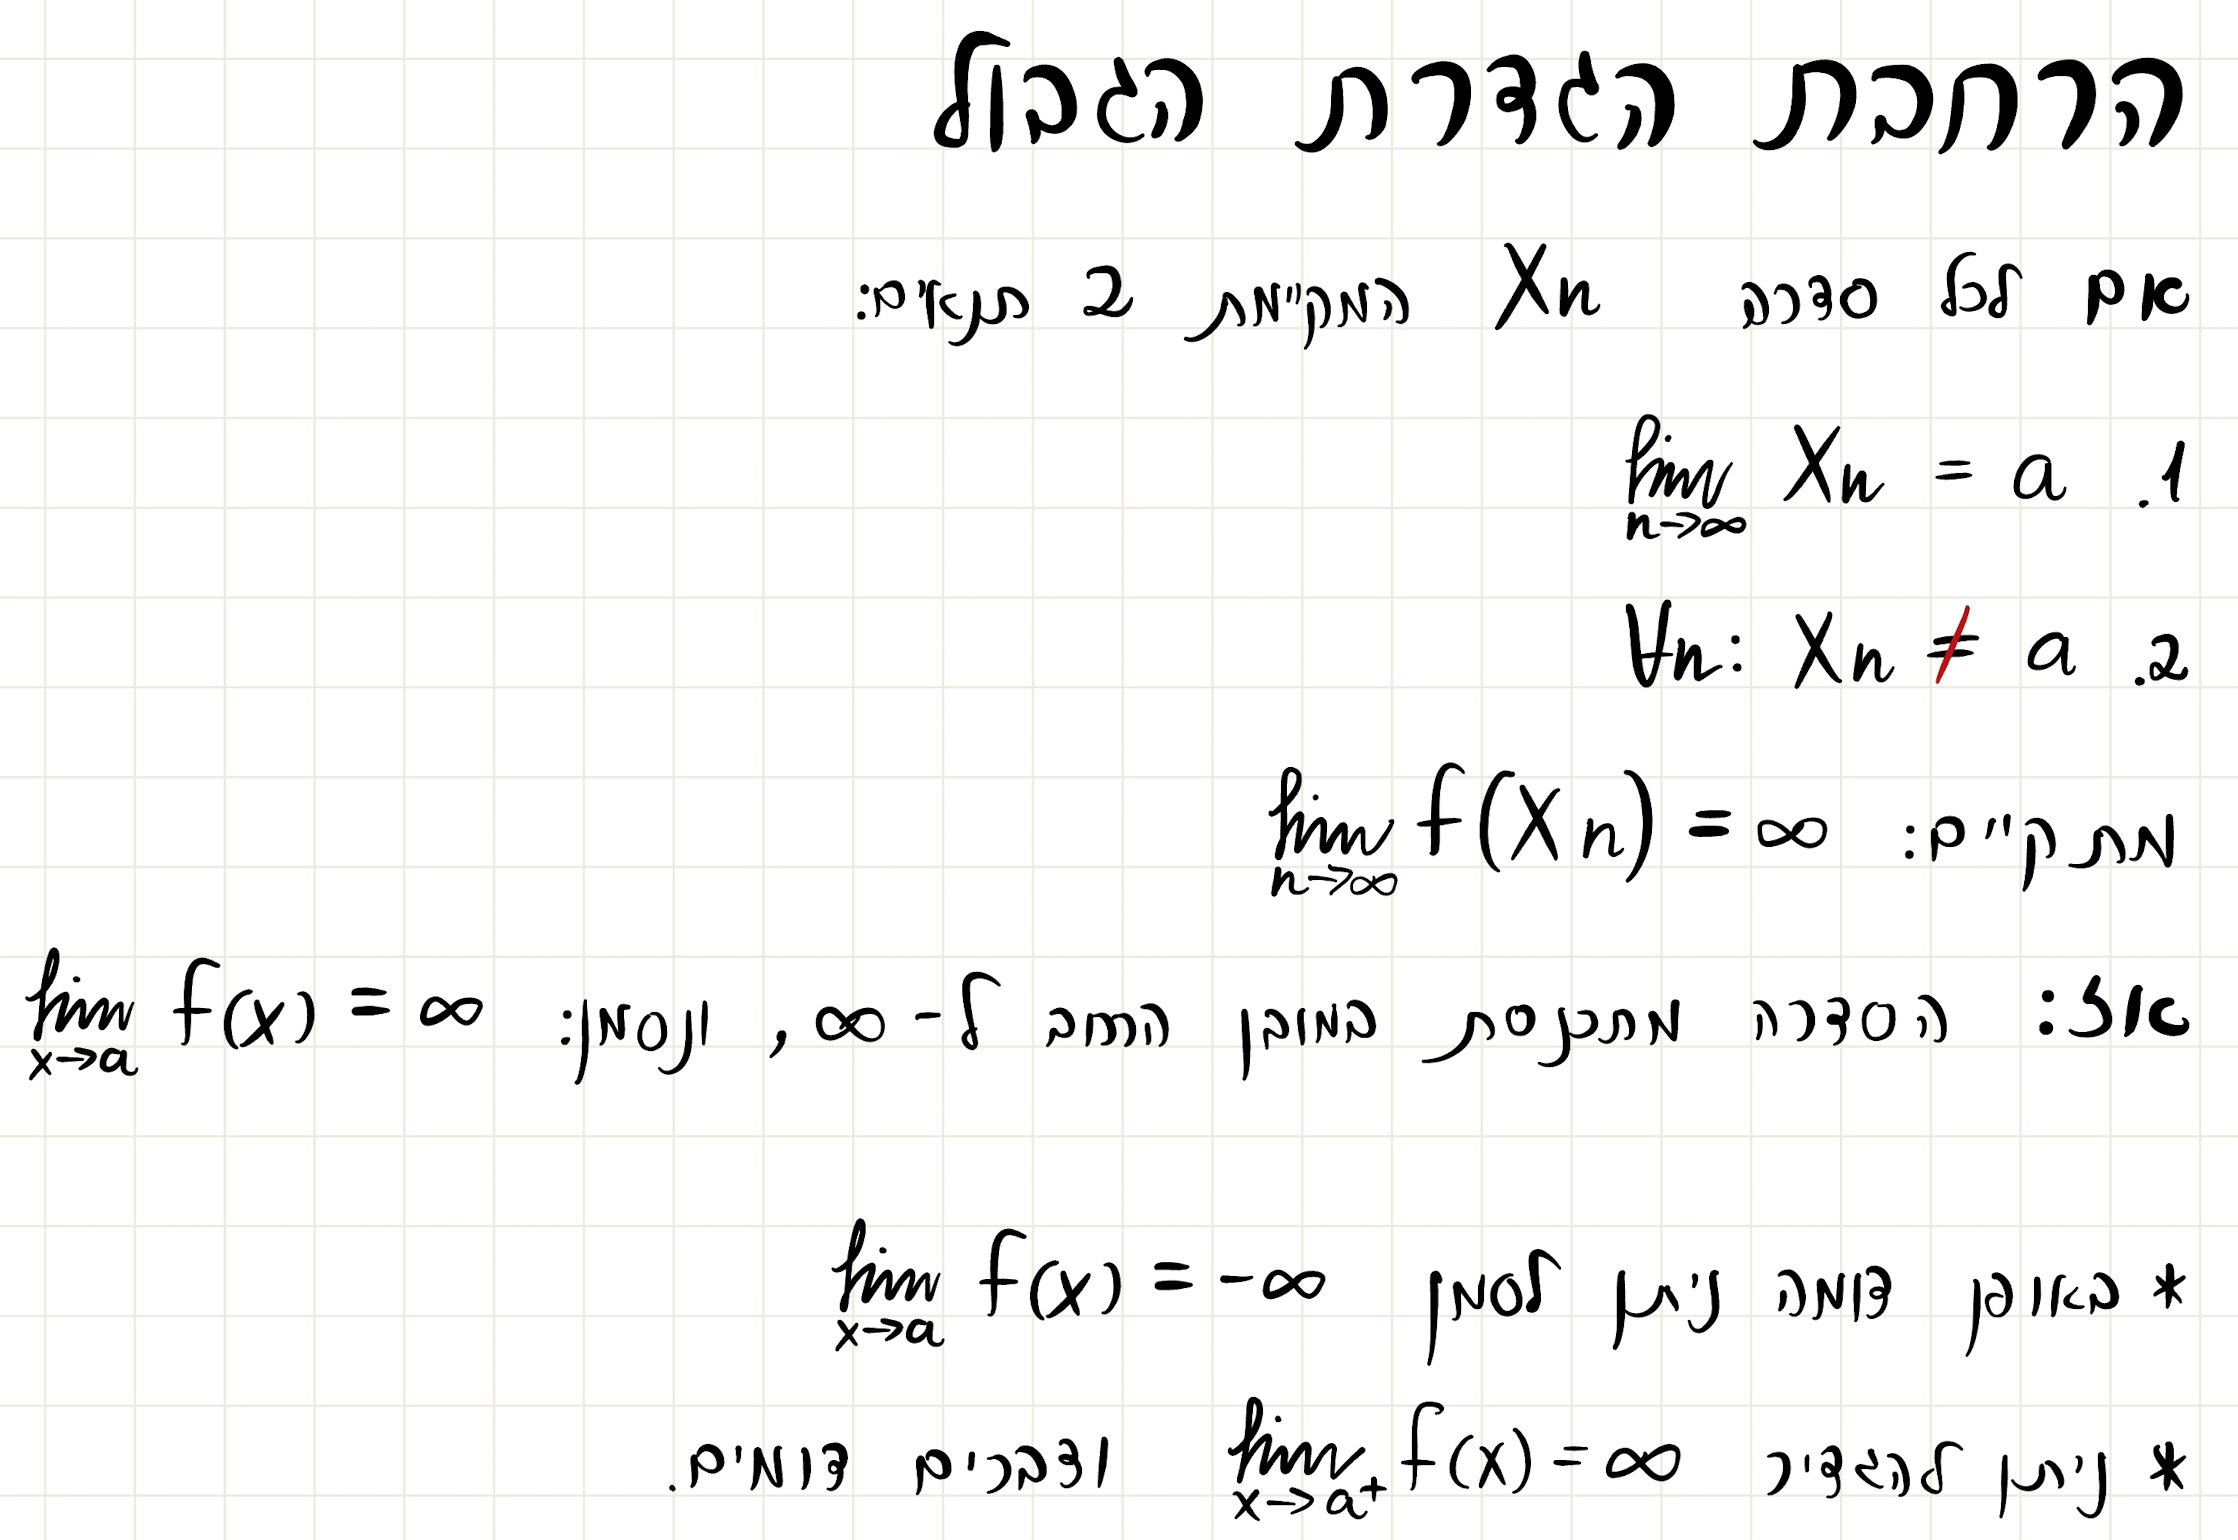 הרחבת הגדרת הגבול
אם לכל סדרה Xn המקיימת 2 תנאים:
1. lim n→∞ Xn = a
2. ∀n: Xn ≠ a
מתקיים: lim n→∞ f(Xn) = ∞
אז: הסדרה מתכנסת במובן הרחב ל-∞, ונסמן: lim x→a f(x) = ∞
* באופן דומה ניתן לסמן lim x→a f(x) = -∞
* ניתן להגדיר lim x→a⁺ f(x) = ∞ ודברים דומים.